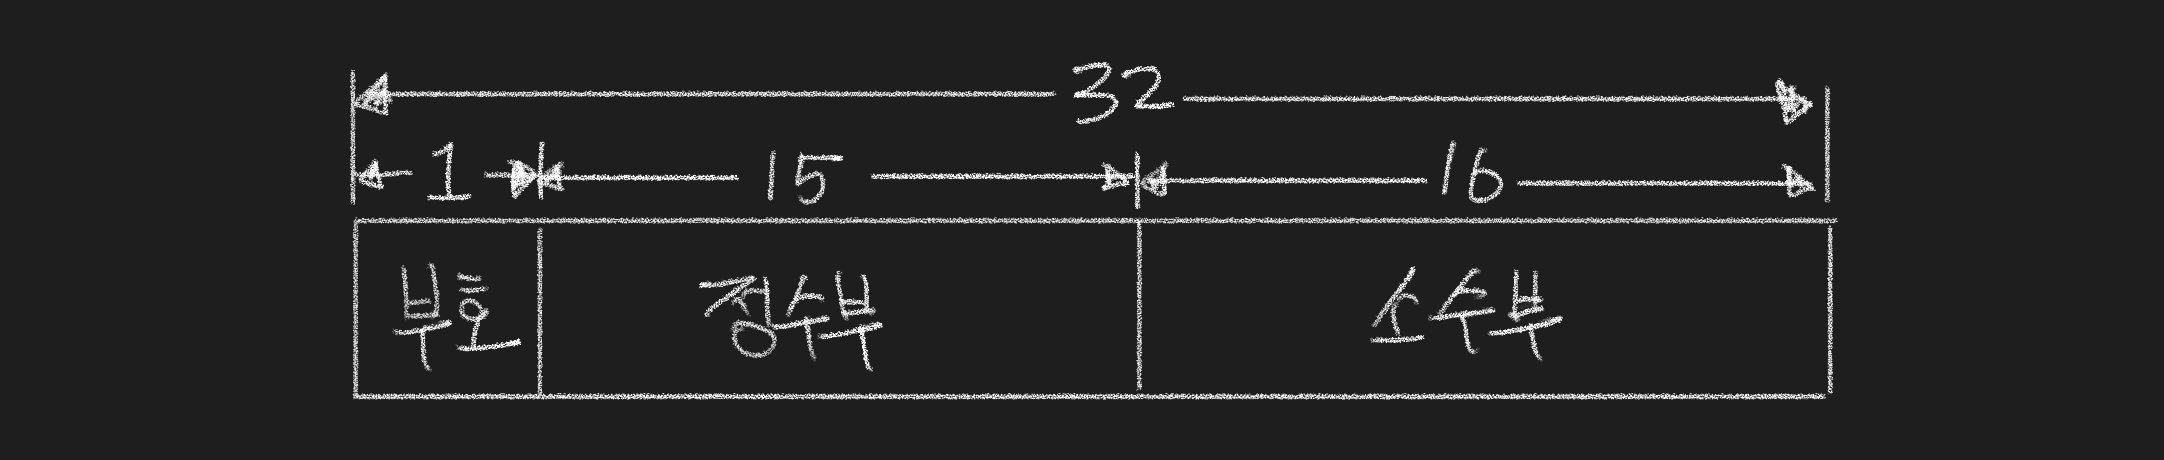 32
1 15 16
부호 정수부 소수부